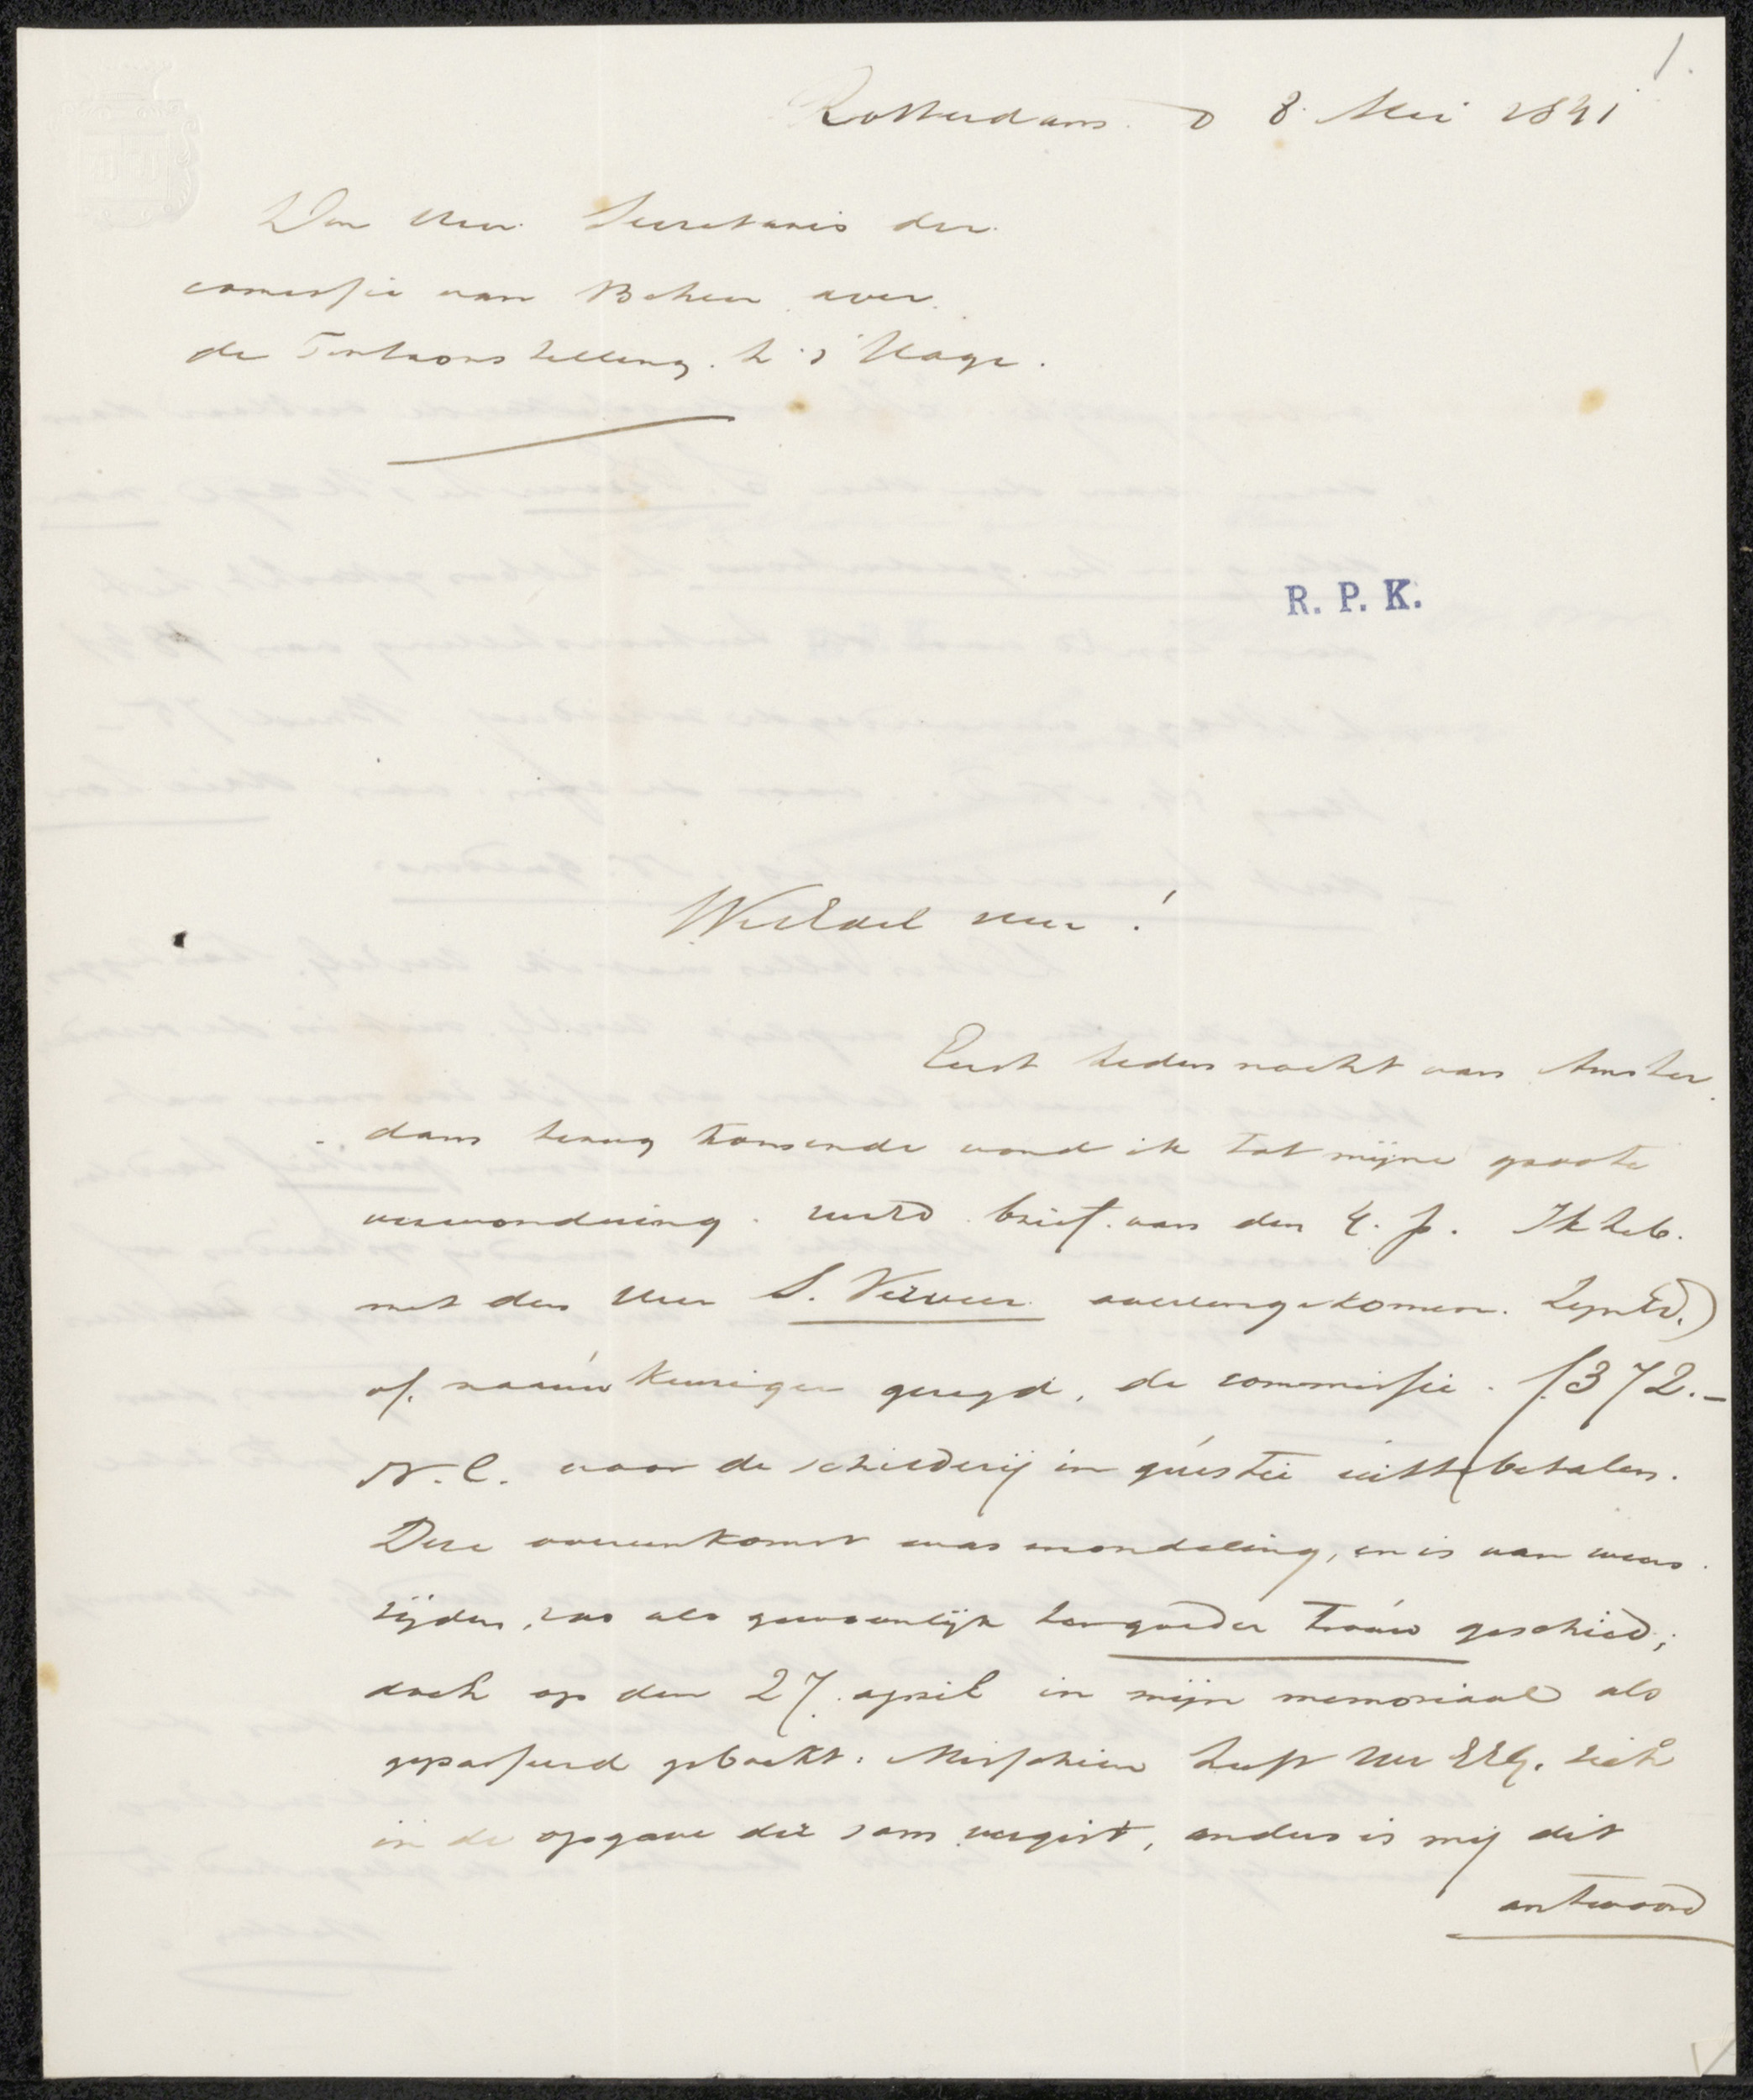 1.
Rotterdam D 8 Mei 1841
Den Heer Secretaris der
comissie van Beheer over
de Tentoonstelling te 's Hage.
R. P. K.
WelEdel Heer!
Eerst heden nacht van Amster
dam terug komende vond ik tot mijne groote
verwondering UwEd brief van den 4. p. Ik heb
met den Heer S. Verveer overeengekomen. ZynEd.)
of naauwkeuriger gezegd, de commissie f372.-
N.C. voor de schilderij in questie uit te betalen.
Deze overeenkomst was mondeling, en is van weers
zijden, zoo als gewoonlijk ter goeder trouw geschied;
doch op den 27 april in mijn memoriaal als
gepasseerd geboekt. Misschien heeft
in de opgave der som vergist, anders is mij dit
antwoord